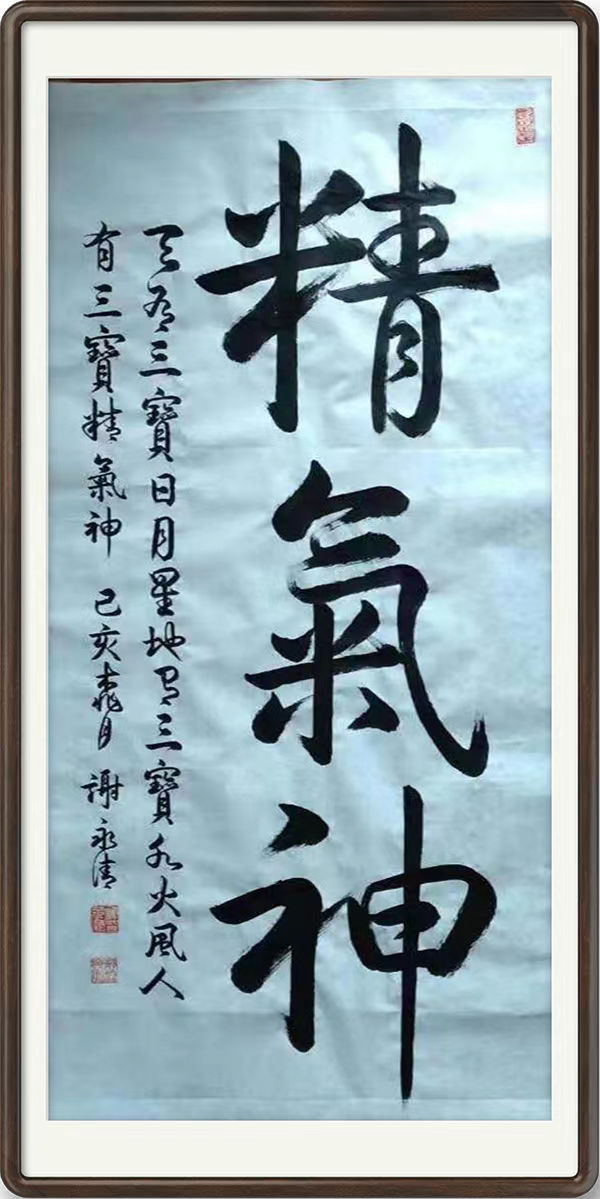 精氣神
天有三寶日月星地有三寶水火風人
有三寶精氣神 己亥桃月 謝永清